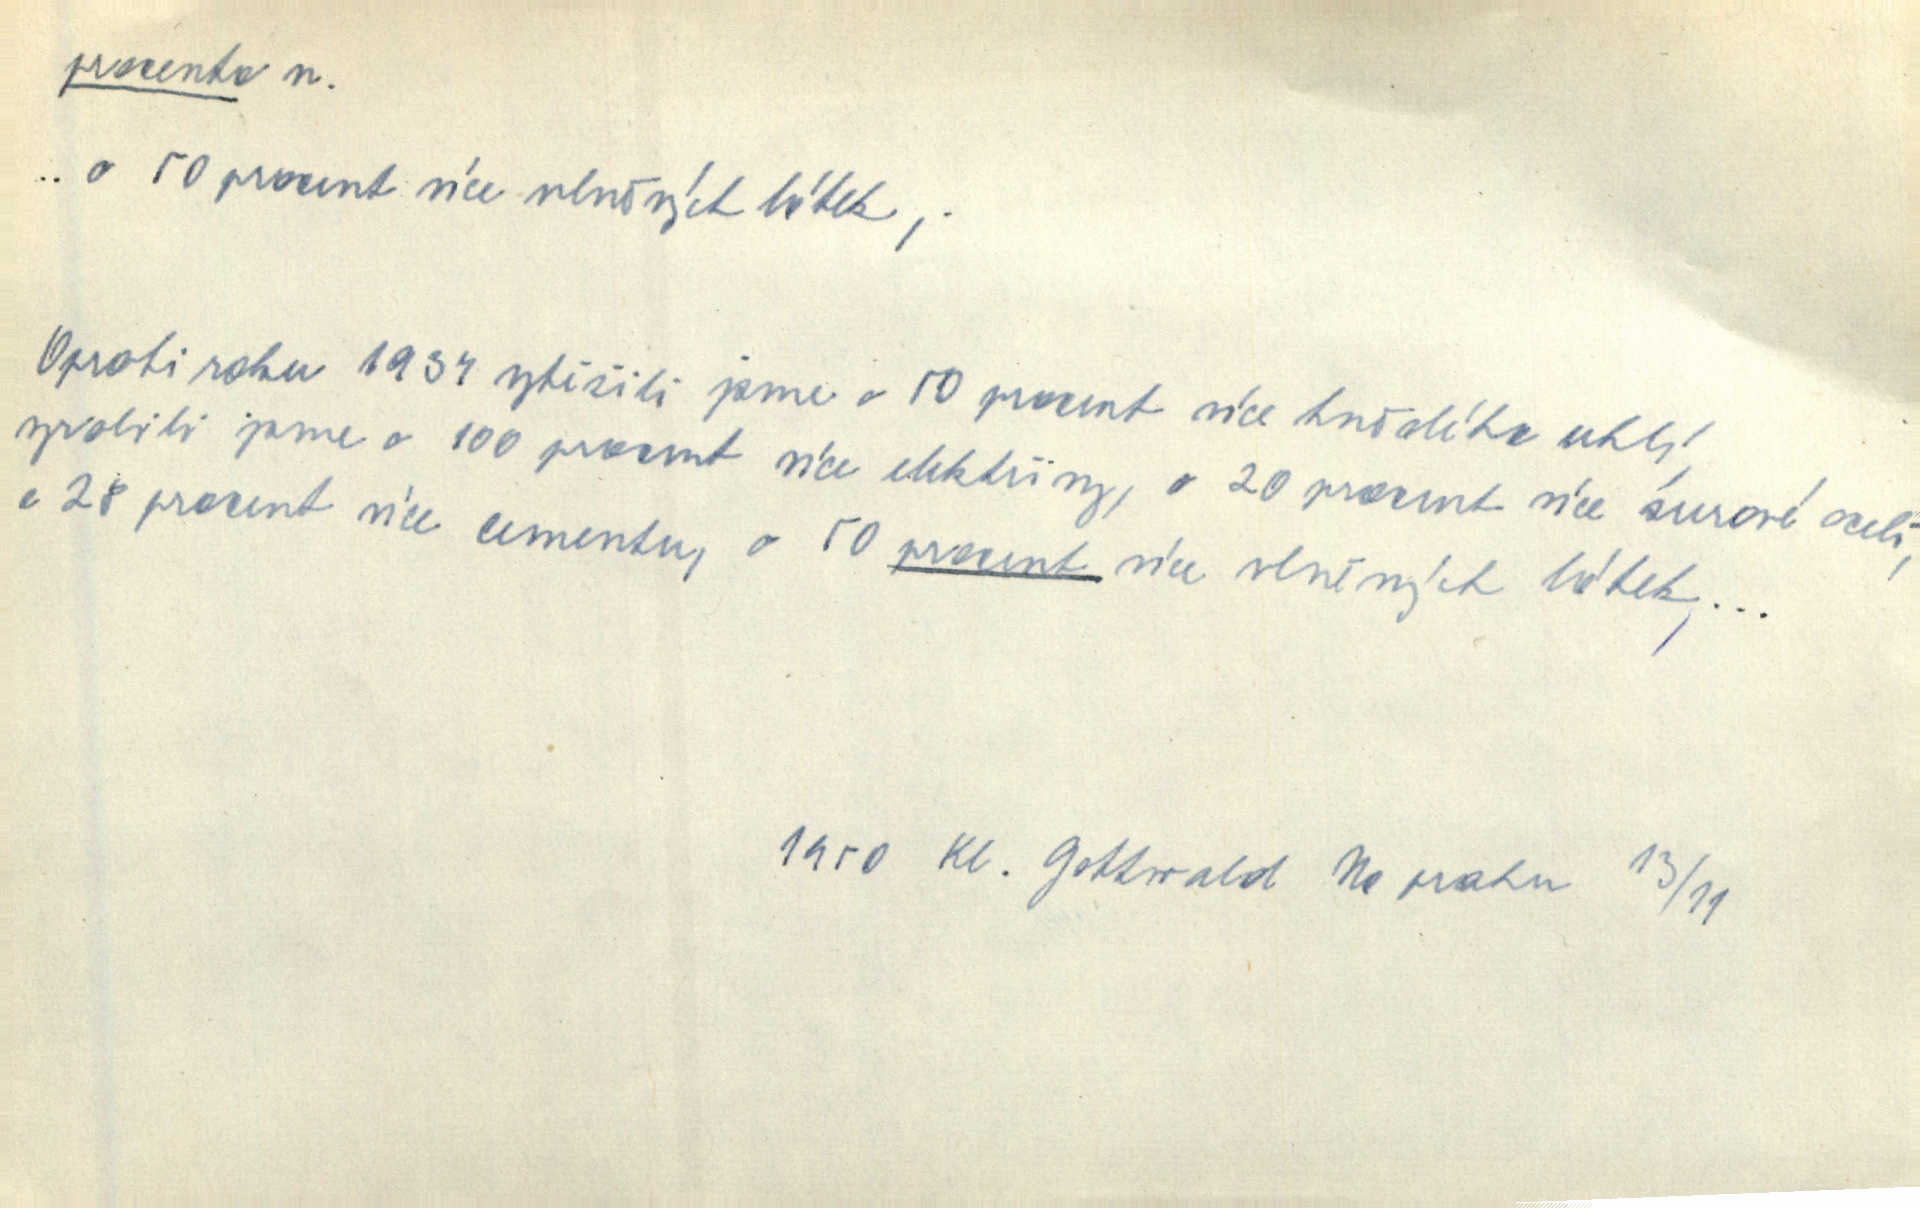 procento n.
.. o 50 procent více vlněných látek, .
Oproti roku 1937 vytěžili jsme o 50 procent více hnědého uhlí,
vyrobili jsme o 100 procent více elektřiny, o 20 procent více surové oceli,
o 28 procent více cementu, o 50 procent více vlněných látek, ...
1950 Kl. Gottwald Na prahu 13/11